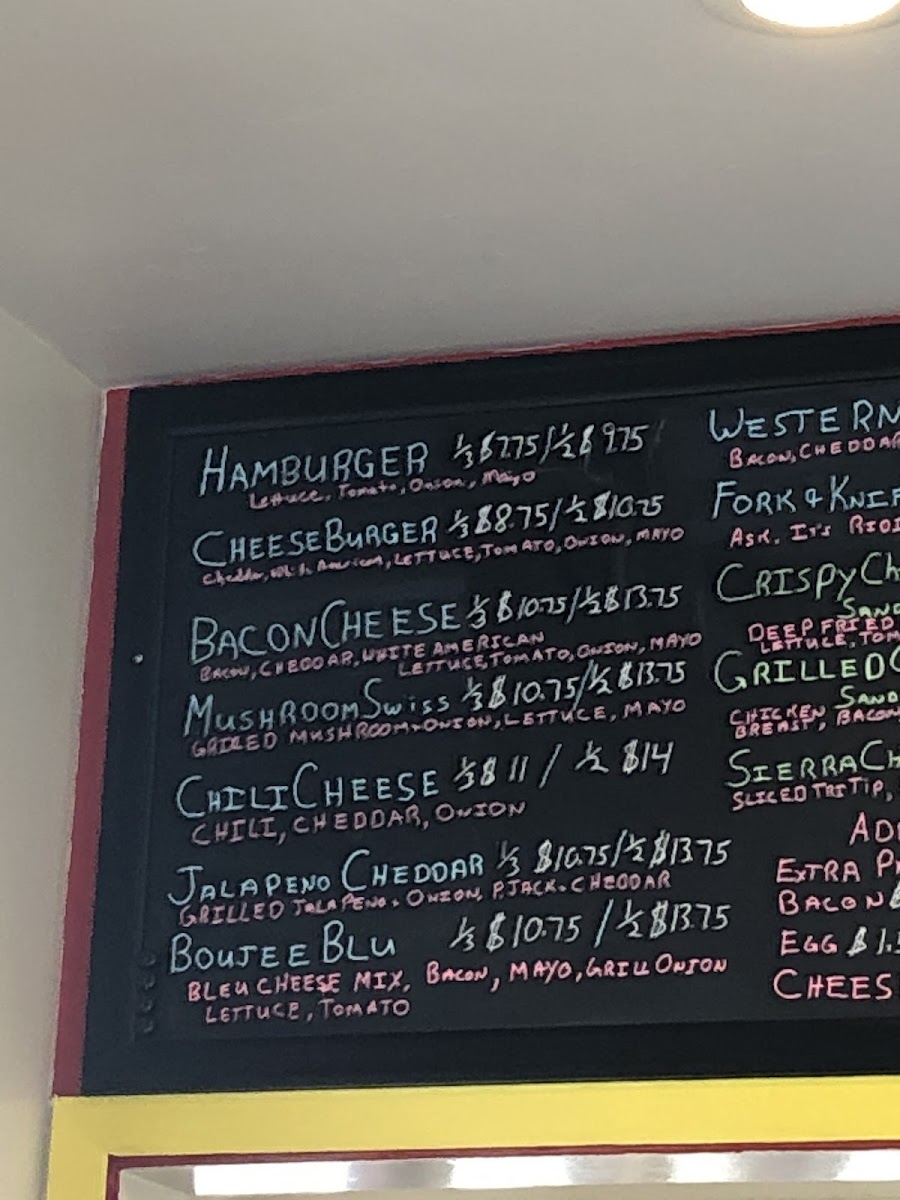 HAMBURGER ⅓ $7.75/½ $9.75
Lettuce, Tomato, Onion, Mayo
CHEESEBURGER ⅓ $8.75/½ $10.75
Cheddar, White American, LETTUCE, TOMATO, ONION, MAYO
BACON CHEESE ⅓ $10.75/½ $13.75
BACON, CHEDDAR, WHITE AMERICAN
LETTUCE, TOMATO, ONION, MAYO
MUSHROOM SWISS ⅓ $10.75/½ $13.75
GRILLED MUSHROOM + ONION, LETTUCE, MAYO
CHILI CHEESE ⅓ $11 / ½ $14
CHILI, CHEDDAR, ONION
JALAPENO CHEDDAR ⅓ $10.75/½ $13.75
GRILLED JALAPENO + ONION, P.JACK + CHEDDAR
BOUJEE BLU ⅓ $10.75 / ½ $13.75
BLEU CHEESE MIX, BACON, MAYO, GRILL ONION
LETTUCE, TOMATO
WESTERN
BACON, CHEDDAR
FORK & KNIF
ASK. IT'S RIDI
CRISPY CH
SAND
DEEP FRIED
LETTUCE, TOM
GRILLED C
SAND
CHICKEN
BREAST, BACON
SIERRA CH
SLICED TRI TIP,
AD
EXTRA P
BACON $
EGG $1.
CHEES